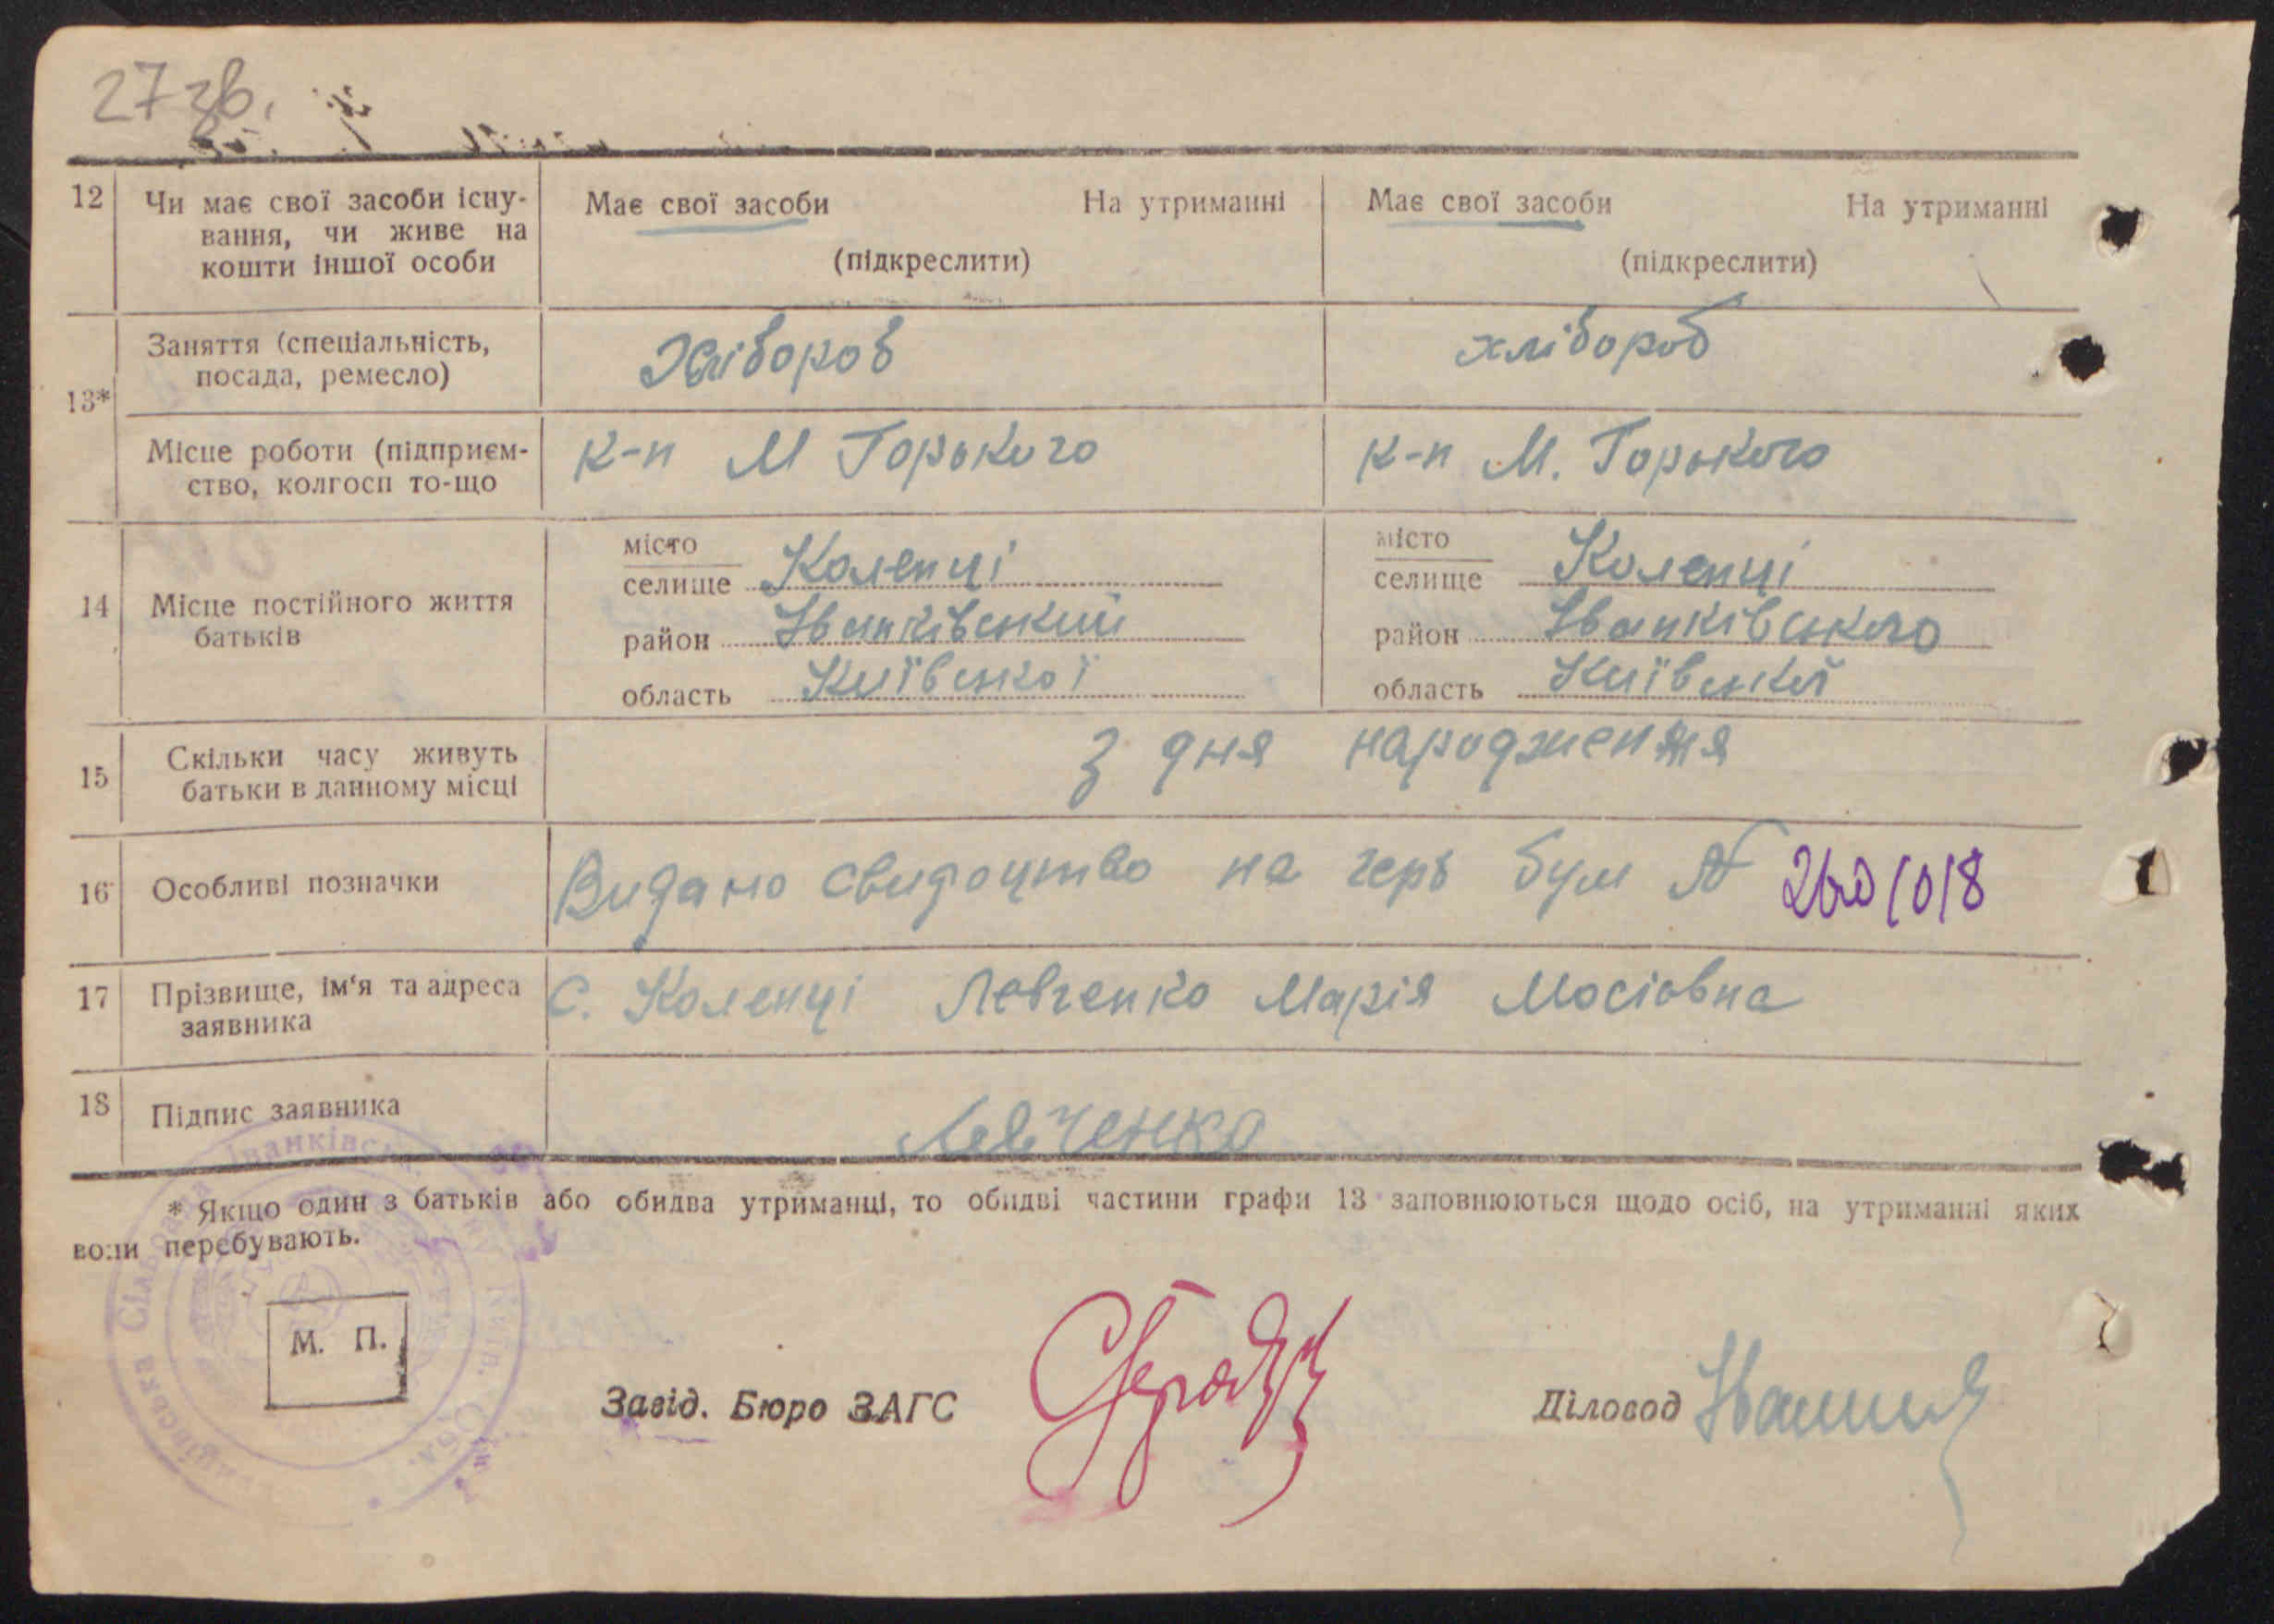 27 зв.
12 Чи має свої засоби існу- Має свої засоби На утриманні Має свої засоби На утриманні
вання, чи живе на
кошти іншої особи (підкреслити) (підкреслити)
13* Заняття (спеціальність, Хлібороб хлібороб
посада, ремесло)
Місце роботи (підприєм- К-п М Горького К-п М. Горького
ство, колгосп то-що
14 Місце постійного життя
батьків
місто
селище Коленці
район Іванківський
область Київської
місто
селище Коленці
район Іванківського
область Київській
15 Скільки часу живуть з дня народження
батьки в данному місці
16 Особливі позначки Видано свидоцтво на герб бум №
17 Прізвище, ім'я та адреса С. Коленці Левченко Марія Мосіовна
заявника
18 Підпис заявника Левченко
* Якщо один з батьків або обидва утриманці, то обидві частини графи 13 заповнюються щодо осіб, на утриманні яких
вони перебувають.
М. П.
Завід. Бюро ЗАГС
Діловод